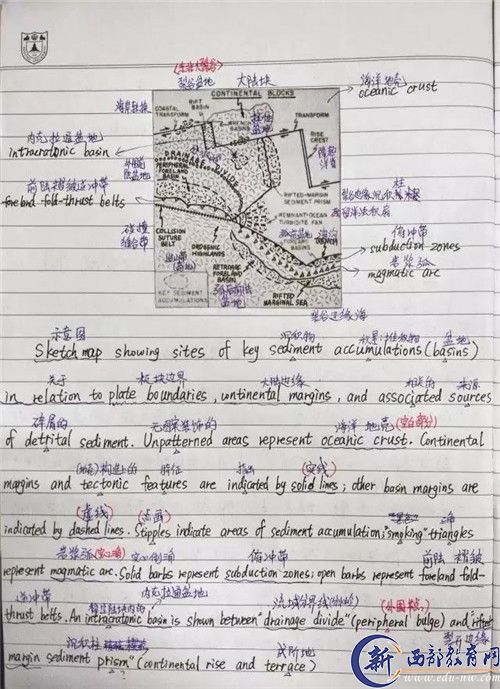 裂谷盆地 大陆块
海洋地壳
oceanic crust
CONTINENTAL BLOCKS
RIFT BASIN
COASTAL TRANSFORM
TRANSFORM
RISE CREST
WRENCH BASINS
内克拉通盆地
intracratonic basin
DRAINAGE DIVIDE
PERIPHERAL FORELAND BASIN
RIFTED-MARGIN SEDIMENT PRISM
REMNANT-OCEAN TURBIDITE FAN
前陆褶皱逆冲带
foreland fold-thrust belts
碰撞缝合带
COLLISION SUTURE BELT
OROGENIC HIGHLANDS
FOREARC BASINS
TRENCH
俯冲带
subduction zones
岩浆弧
magmatic arc
RETROARC FORELAND BASIN
KEY SEDIMENT ACCUMULATIONS
RIFTED MARGINAL SEA
裂谷边缘海
示意图 沉积物 盆地
Sketch map showing sites of key sediment accumulations (basins)
关于 板块边界 大陆边缘 来源
in relation to plate boundaries, continental margins, and associated sources
碎屑的 海洋地壳 (空白部分)
of detrital sediment. Unpatterned areas represent oceanic crust. Continental
构造上的 特征 指出 (实线)
margins and tectonic features are indicated by solid lines; other basin margins are
(虚线) (点画)
indicated by dashed lines. Stipples indicate areas of sediment accumulation; "smoking" triangles
岩浆弧 俯冲带 前陆 褶皱
represent magmatic arc. Solid barbs represent subduction zones; open barbs represent foreland fold-
逆冲带 内克拉通盆地 流域分界线
thrust belts. An intracratonic basin is shown between "drainage divide" (peripheral bulge) and "rifted
沉积柱
margin sediment prism" (continental rise and terrace)
新 西部教育网
www.edu-nw.com